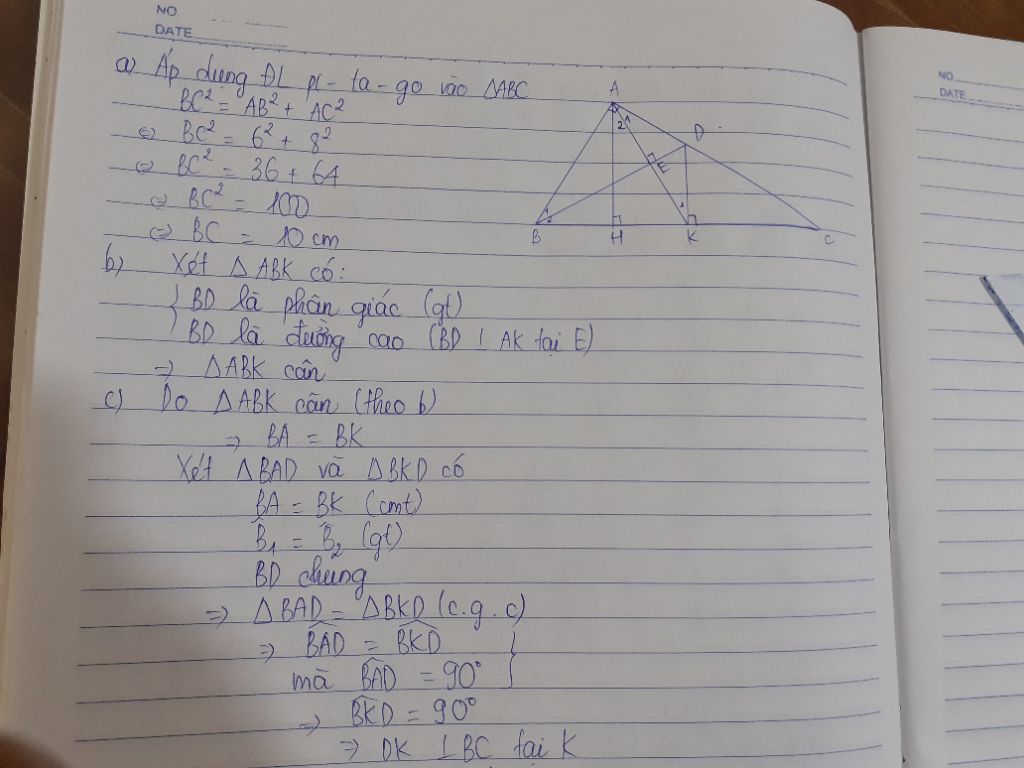 NO.
DATE
a) Áp dụng ĐL pi-ta-go vào △ABC
BC² = AB² + AC²
⇔ BC² = 6² + 8²
⇔ BC² = 36 + 64
⇔ BC² = 100
⇔ BC = 10 cm
b) Xét △ABK có:
BD là phân giác (gt)
BD là đường cao (BD ⊥ AK tại E)
⇒ △ABK cân
c) Do △ABK cân (theo b)
⇒ BA = BK
Xét △BAD và △BKD có
BA = BK (cmt)
B̂₁ = B̂₂ (gt)
BD chung
⇒ △BAD = △BKD (c.g.c)
⇒ BAD = BKD
mà BAD = 90°
⇒ BKD = 90°
⇒ DK ⊥ BC tại K
A
2 1
D
E
B H K C
NO.
DATE